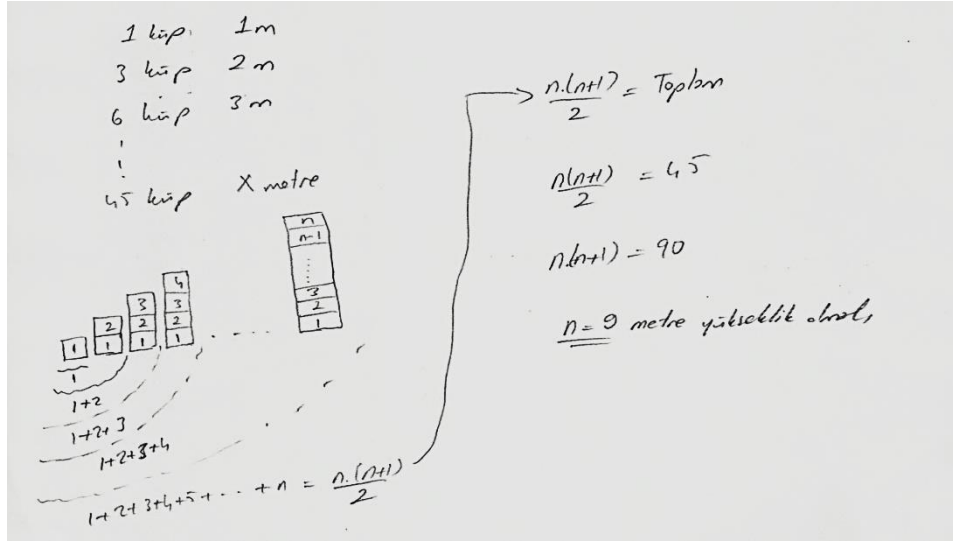 1 küp 1m
3 küp 2m
6 küp 3m
45 küp X metre
n
n-1
3
2
1
4
3 3
2 2 2
1 1 1 1
1
1+2
1+2+3
1+2+3+4
1+2+3+4+5+...+n = n.(n+1)/2
n.(n+1)/2 = Toplam
n(n+1)/2 = 45
n.(n+1) = 90
n = 9 metre yükseklik olmalı